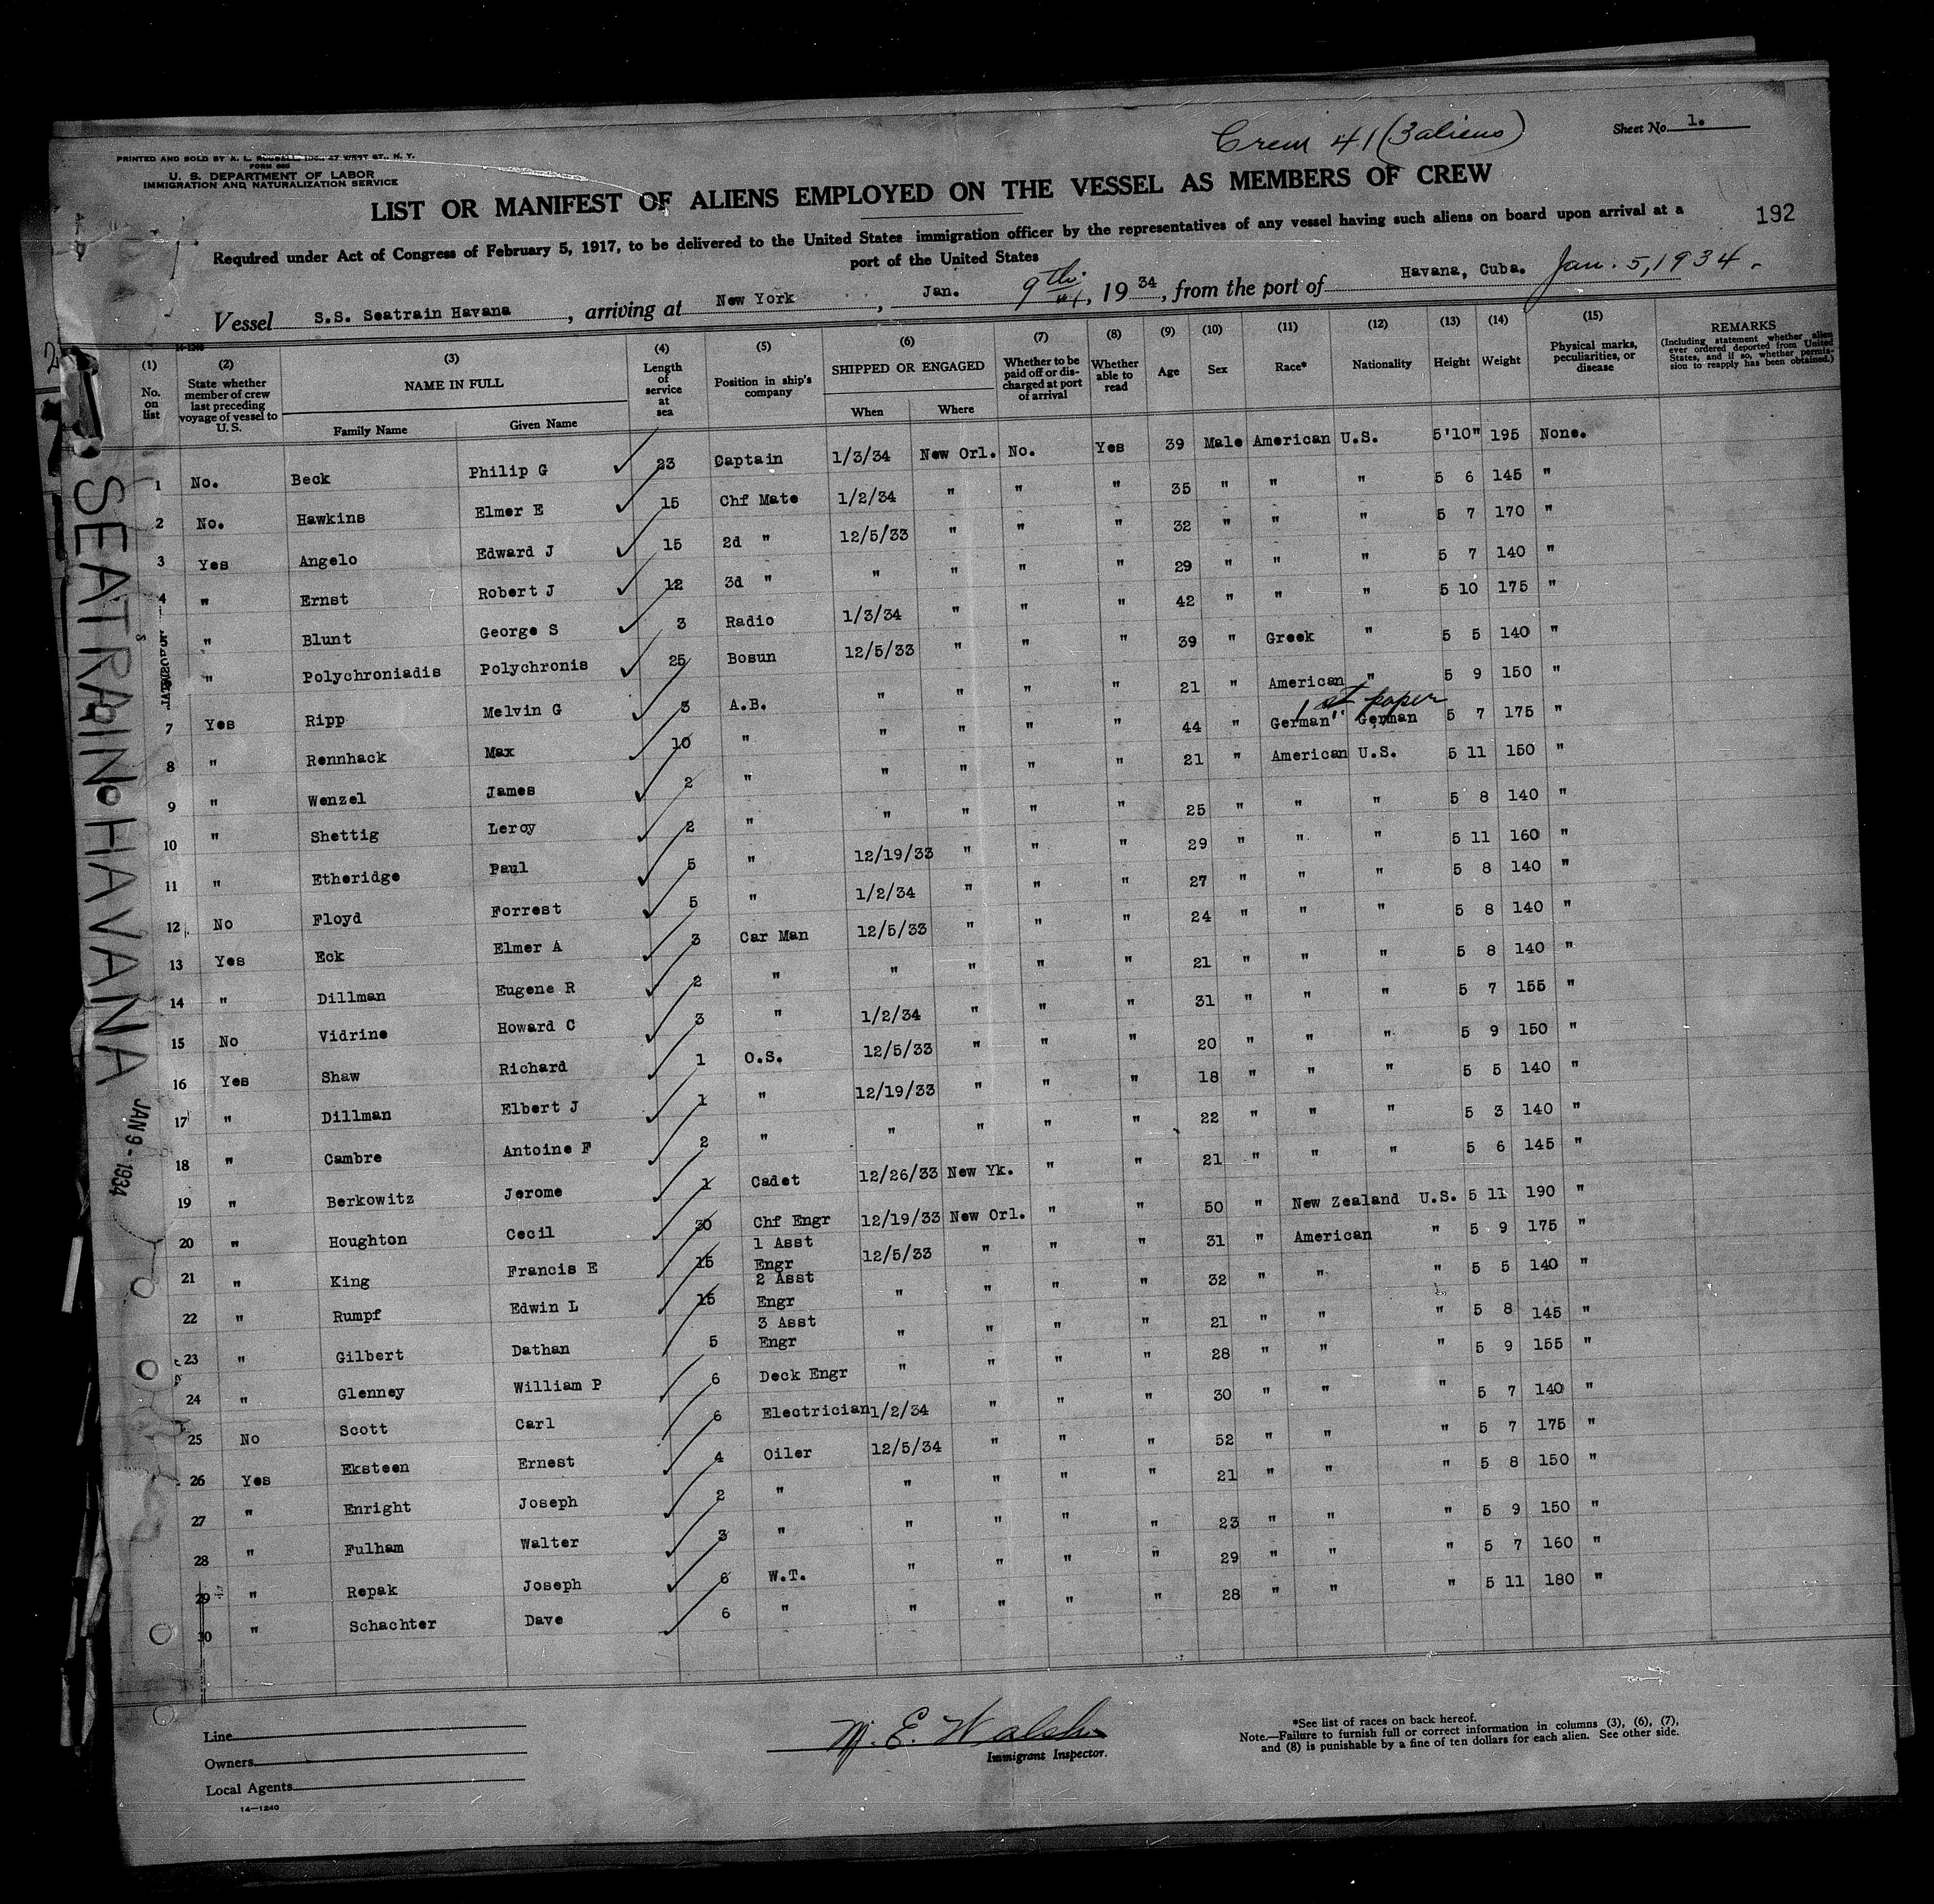 Crew 41 (3 aliens)
Sheet No. 1.
PRINTED AND SOLD BY A. L. INC., 47 WEST ST., N. Y.
FORM 680
U. S. DEPARTMENT OF LABOR
IMMIGRATION AND NATURALIZATION SERVICE
LIST OR MANIFEST OF ALIENS EMPLOYED ON THE VESSEL AS MEMBERS OF CREW
192
Required under Act of Congress of February 5, 1917, to be delivered to the United States immigration officer by the representatives of any vessel having such aliens on board upon arrival at a
port of the United States
Vessel S.S. Seatrain Havana, arriving at New York, Jan. 9th, 1934, from the port of Havana, Cuba. Jan. 5, 1934.
14-1240
(1) No. on list
(2) State whether member of crew last preceding voyage of vessel to U. S.
(3) NAME IN FULL Family Name Given Name
(4) Length of service at sea
(5) Position in ship's company
(6) SHIPPED OR ENGAGED When Where
(7) Whether to be paid off or discharged at port of arrival
(8) Whether able to read
(9) Age
(10) Sex
(11) Race*
(12) Nationality
(13) Height
(14) Weight
(15) Physical marks, peculiarities, or disease
REMARKS (Including statement whether alien ever ordered deported from United States, and if so, whether permission to reapply has been obtained.)
1 No. Beck Philip G 23 Captain 1/3/34 New Orl. No. Yes 39 Male American U.S. 5'10" 195 None.
2 No. Hawkins Elmer E 15 Chf Mate 1/2/34 " " " 35 " " " 5 6 145 "
3 Yes Angelo Edward J 15 2d " 12/5/33 " " " 32 " " " 5 7 170 "
4 " Ernst Robert J 12 3d " " " " " 29 " " " 5 7 140 "
" Blunt George S 3 Radio 1/3/34 " " " 42 " " " 5 10 175 "
" Polychroniadis Polychronis 25 Bosun 12/5/33 " " " 39 " Greek " 5 5 140 "
7 Yes Ripp Melvin G 3 A.B. " " " " 21 " American " 5 9 150 "
1st paper
8 " Rennhack Max 10 " " " " " 44 " German " German 5 7 175 "
9 " Wenzel James 2 " " " " " 21 " American U.S. 5 11 150 "
10 " Shettig Leroy 2 " " " " " 25 " " " 5 8 140 "
11 " Etheridge Paul 5 " 12/19/33 " " " 29 " " " 5 11 160 "
12 No Floyd Forrest 5 " 1/2/34 " " " 27 " " " 5 8 140 "
13 Yes Eck Elmer A 3 Car Man 12/5/33 " " " 24 " " " 5 8 140 "
14 " Dillman Eugene R 2 " " " " " 21 " " " 5 8 140 "
15 No Vidrine Howard C 3 " 1/2/34 " " " 31 " " " 5 7 155 "
16 Yes Shaw Richard 1 O.S. 12/5/33 " " " 20 " " " 5 9 150 "
17 " Dillman Elbert J 1 " 12/19/33 " " " 18 " " " 5 5 140 "
18 " Cambre Antoine F 2 " " " " " 22 " " " 5 3 140 "
19 " Berkowitz Jerome 1 Cadet 12/26/33 New Yk. " " 21 " " " 5 6 145 "
20 " Houghton Cecil 30 Chf Engr 12/19/33 New Orl. " " 50 " New Zealand U.S. 5 11 190 "
21 " King Francis E 15 1 Asst Engr 12/5/33 " " " 31 " American " 5 9 175 "
22 " Rumpf Edwin L 15 2 Asst Engr " " " " 32 " " " 5 5 140 "
23 " Gilbert Dathan 5 3 Asst Engr " " " " 21 " " " 5 8 145 "
24 " Glenney William P 6 Deck Engr " " " " 28 " " " 5 9 155 "
25 No Scott Carl 6 Electrician 1/2/34 " " " 30 " " " 5 7 140 "
26 Yes Eksteen Ernest 4 Oiler 12/5/34 " " " 52 " " " 5 7 175 "
27 " Enright Joseph 2 " " " " " 21 " " " 5 8 150 "
28 " Fulham Walter 3 " " " " " 23 " " " 5 9 150 "
29 " Repak Joseph 6 W.T. " " " " 29 " " " 5 7 160 "
30 " Schachter Dave 6 " " " " " 28 " " " 5 11 180 "
SEATRAIN HAVANA
JAN 9 - 1934
Line
Owners
Local Agents
14—1240
M. E. Walsh
Immigrant Inspector.
*See list of races on back hereof.
Note.—Failure to furnish full or correct information in columns (3), (6), (7),
and (8) is punishable by a fine of ten dollars for each alien. See other side.